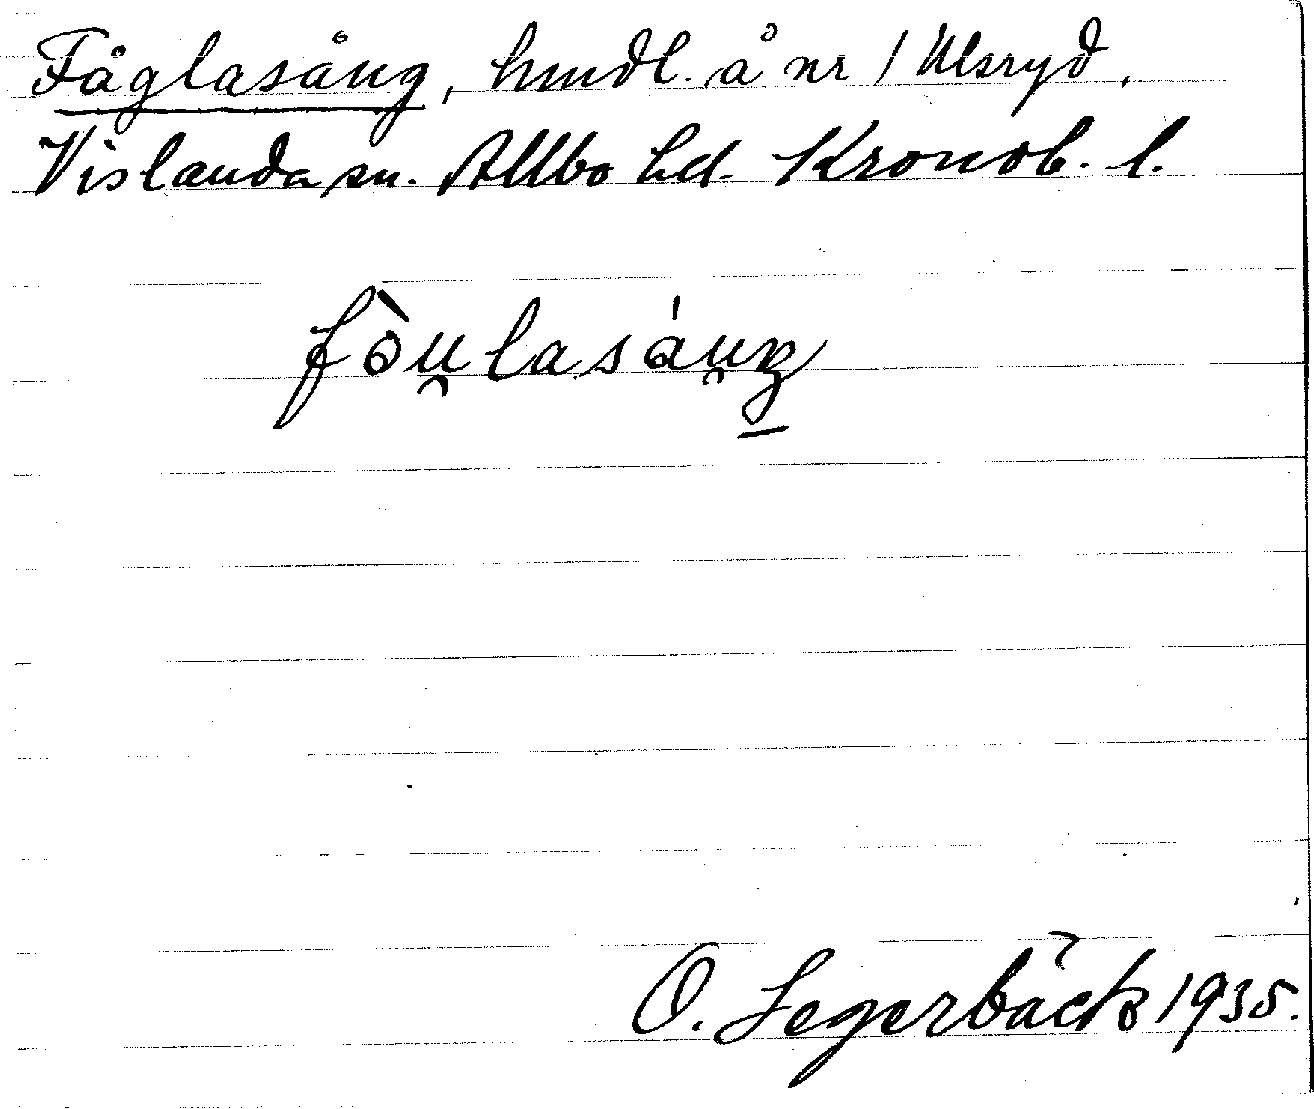 Fåglasång, hmdl. å nr 1 Ulsryd.
Vislanda sn. Allbo hd. Kronob. l.
O. Segerbäck 1935.